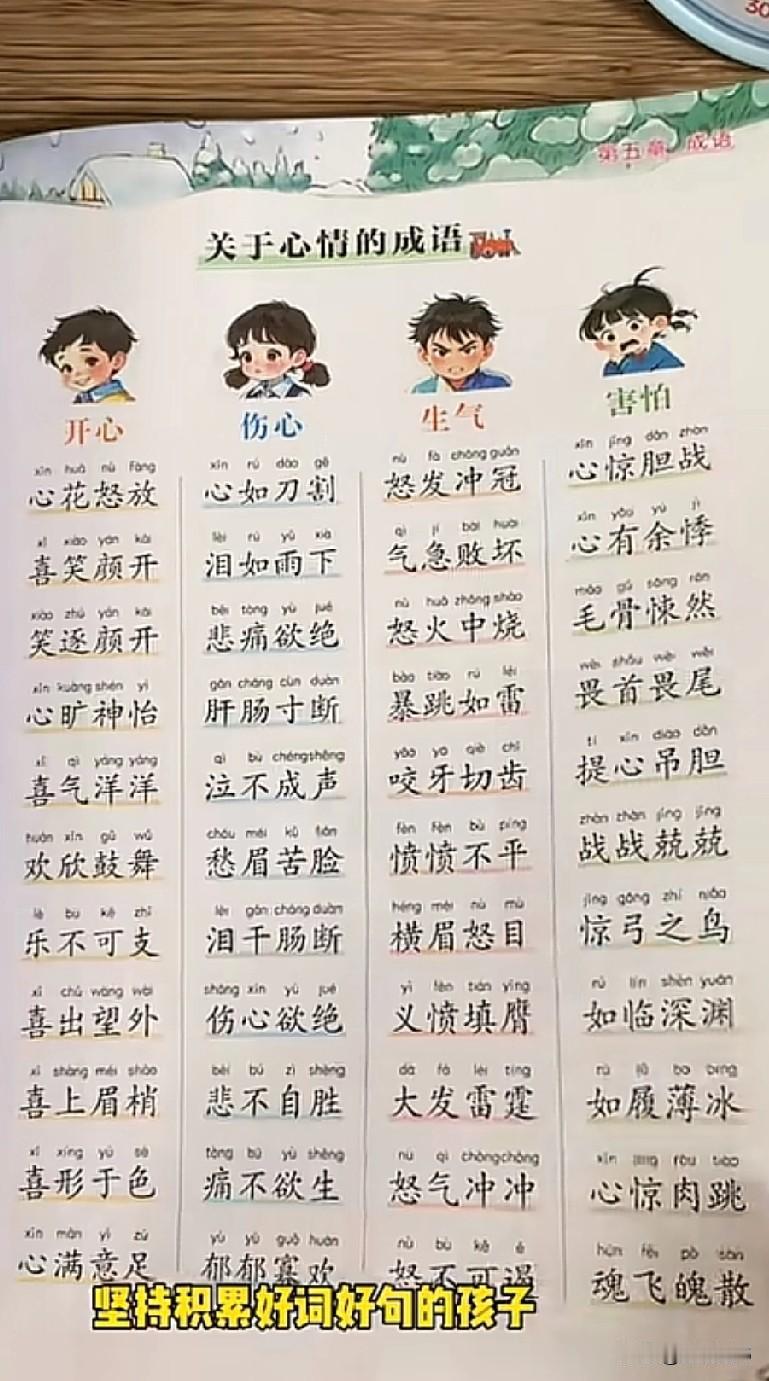 30
第五章 成语
关于心情的成语
开心 伤心 生气 害怕
xīn huā nù fàng xīn rú dāo gē nù fà chōng guān xīn jīng dǎn zhàn
心花怒放 心如刀割 怒发冲冠 心惊胆战
xǐ xiào yán kāi lèi rú yǔ xià qì jí bài huài xīn yǒu yú jì
喜笑颜开 泪如雨下 气急败坏 心有余悸
xiào zhú yán kāi bēi tòng yù jué nù huǒ zhōng shāo máo gǔ sǒng rán
笑逐颜开 悲痛欲绝 怒火中烧 毛骨悚然
xīn kuàng shén yí gān cháng cùn duàn bào tiào rú léi wèi shǒu wèi wěi
心旷神怡 肝肠寸断 暴跳如雷 畏首畏尾
xǐ qì yáng yáng qì bù chéng shēng yǎo yá qiè chǐ tí xīn diào dǎn
喜气洋洋 泣不成声 咬牙切齿 提心吊胆
huān xīn gǔ wǔ chóu méi kǔ liǎn fèn fèn bù píng zhàn zhàn jīng jīng
欢欣鼓舞 愁眉苦脸 愤愤不平 战战兢兢
lè bù kě zhī lèi gān cháng duàn héng méi nù mù jīng gōng zhī niǎo
乐不可支 泪干肠断 横眉怒目 惊弓之鸟
xǐ chū wàng wài shāng xīn yù jué yì fèn tián yīng rú lín shēn yuān
喜出望外 伤心欲绝 义愤填膺 如临深渊
xǐ shàng méi shāo bēi bú zì shèng dà fā léi tíng rú lǚ bó bīng
喜上眉梢 悲不自胜 大发雷霆 如履薄冰
xǐ xíng yú sè tòng bú yù shēng nù qì chōng chōng xīn jīng ròu tiào
喜形于色 痛不欲生 怒气冲冲 心惊肉跳
xīn mǎn yì zú yù yù guǎ huān nù bù kě è hún fēi pò sàn
心满意足 郁郁寡欢 怒不可遏 魂飞魄散
坚持积累好词好句的孩子